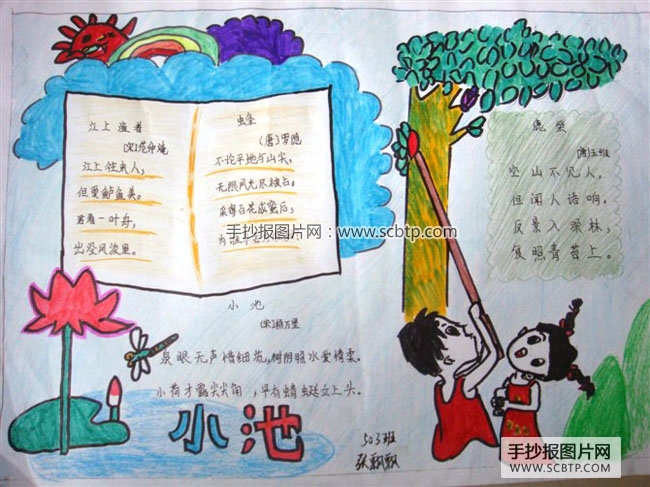 江上渔者
(宋)范仲淹
江上往来人,
但爱鲈鱼美。
君看一叶舟,
出没风波里。
蜂
(唐)罗隐
不论平地与山尖,
无限风光尽被占。
采得百花成蜜后,
手抄报图片网：www.scbtp.com
鹿柴
(唐)王维
空山不见人,
但闻人语响。
反景入深林,
复照青苔上。
小池
(宋)杨万里
泉眼无声惜细流,树阴照水爱晴柔。
小荷才露尖尖角,早有蜻蜓立上头。
小池
503班
张飘飘
手抄报图片网
WWW.SCBTP.COM